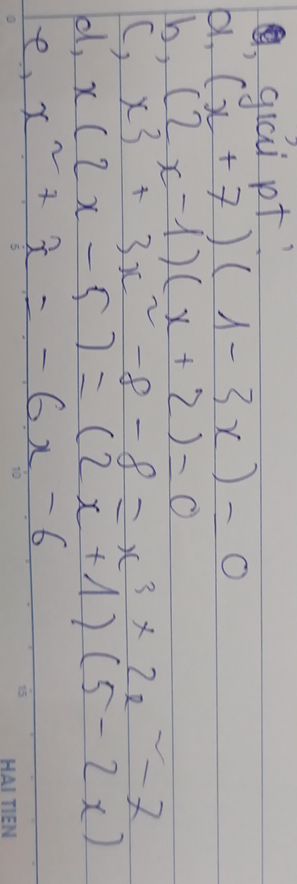 giải pt
a, (x + 7)(1 - 3x) = 0
b, (2x - 1)(x + 2) = 0
c, x³ + 3x² - 8 - 8 = x³ + 2x² - 7
d, x(2x - 5) = (2x + 1)(5 - 2x)
e, x² + x = - 6x - 6
0 5 10 15 HAI TIEN